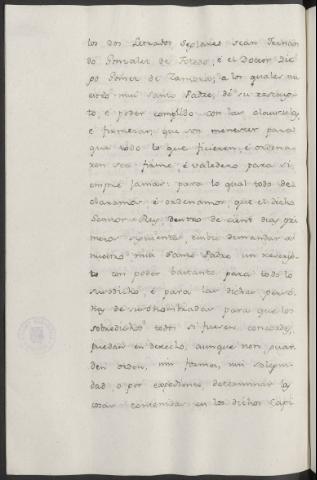 los dos Letrados Seglares sean Fernan
do Gonzalez de Toledo, é el Doctor Die
go Gomez de Zamora; a los quales nu
estro mui Santo Padre, dé su rescrip
to, é poder complido con las clausulas,
é firmezas, que son menester para
que todo lo que ficieren, é ordena
ren sea firme, é valedero para si
empre jamas: para lo qual todo de
claramos é ordenamos que el dicho
Sennor Rey, dentro de cient dias pri
meros siguientes, embie demandar a
nuestro mui Santo Padre un rescrip
to con poder bastante para todo lo
susodicho, é para las dichas perso
nas de suso nombradas para que los
sobredichos todos si fueren concordes,
puedan en derecho, aunque non guar
den orden, nin forma, nin solepni
dad o por expediente determinar las
cosas contenidas en los dichos Capi